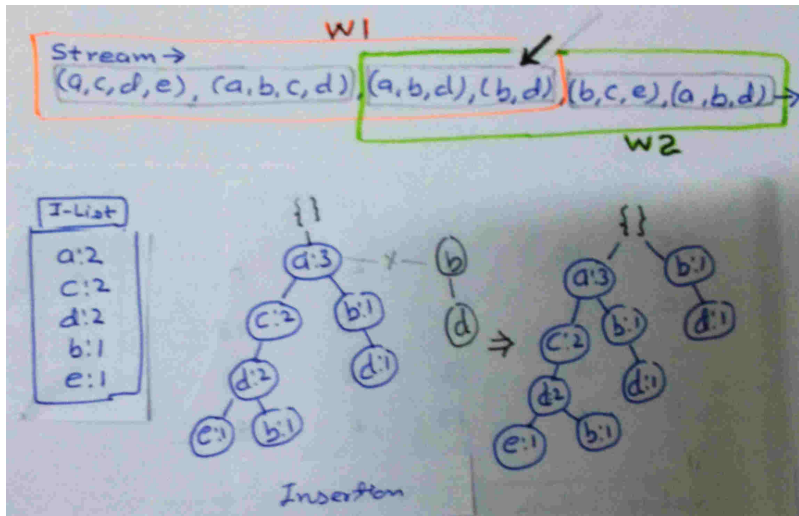 W1
Stream →
(a,c,d,e), (a,b,c,d), (a,b,d), (b,d), (b,c,e), (a,b,d) →
W2
I-List
a:2
c:2
d:2
b:1
e:1
{}
a:3 x b
c:2 b:1 d
d:2 d:1
e:1 b:1
⇒
{}
a:3 b:1
c:2 b:1 d:1
d:2 d:1
e:1 b:1
Insertion